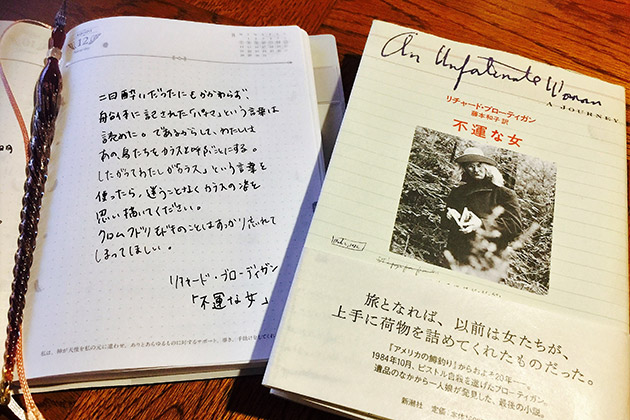 12
二日酔いだったにもかかわらず
船体に記された「パナマ」という言葉は
読めた。であるからして、わたしは
あの鳥たちをカラスと呼ぶことにする。
したがってわたしが「カラス」という言葉を
使ったら、違うことなくカラスの姿を
思い描いてください。
クロムクドリモドキのことはすっかり忘れて
しまってほしい。
リチャード・ブローティガン
「不運な女」
An Unfortunate Woman
A JOURNEY
リチャード・ブローティガン
藤本和子 訳
不運な女
旅となれば、以前は女たちが、
上手に荷物を詰めてくれたものだった。
『アメリカの鱒釣り』からおよそ20年──。
1984年10月、ピストル自殺を遂げたブローティガン。
遺品のなかから一人娘が発見した、最後の小説。
新潮社